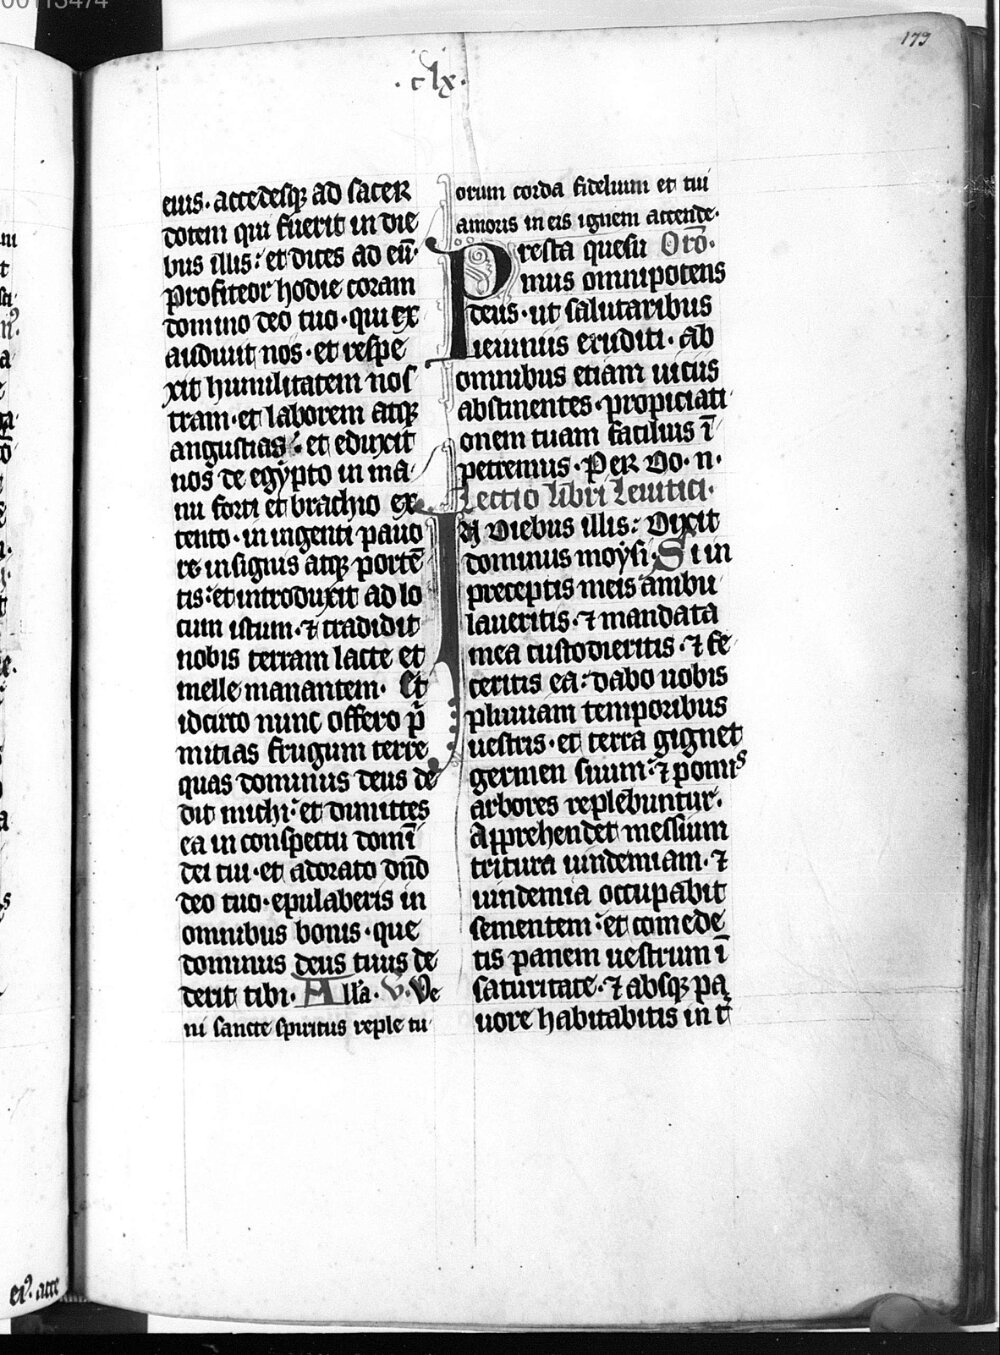 00113474
179
·clx·
eius· accedesq; ad sacer
dotem qui fuerit in die
bus illis: et dices ad eū·
Profiteor hodie coram
domino deo tuo· qui ex
audiuit nos· et respe
xit humilitatem nos
tram· et laborem atq;
angustias: et eduxit
nos de egypto in ma
nu forti et brachio ex
tento· in ingenti pauo
re in signis atq; portē
tis: et introduxit ad lo
cum istum· ⁊ tradidit
nobis terram lacte et
melle manantem· Et
idcirco nunc offero p̄
mitias frugum terre
quas dominus deus de
dit michi: et dimittes
ea in conspectu domī
dei tui· et adorato dn̄o
deo tuo· epulaberis in
omnibus bonis· que
dominus deus tuus de
derit tibi· Alla· V· Ve
ni sancte spiritus reple tu
orum corda fidelium et tui
amoris in eis ignem accende·
Presta quesu Orō·
mus omnipotens
deus· ut salutaribus
ieiuniis eruditi· ab
omnibus etiam uiciis
abstinentes· propiciati
onem tuam facilius ī
petremus· Per do· n·
Lectio libri leuitici·
In diebus illis: Dixit
dominus moysi· Si in
preceptis meis ambu
laueritis· ⁊ mandata
mea custodieritis· ⁊ fe
ceritis ea: dabo uobis
pluuiam temporibus
uestris· et terra gignet
germen suum: ⁊ pomis
arbores replebuntur·
Apprehendet messium
tritura uindemiam· ⁊
uindemia occupabit
sementem: et comede
tis panem uestrum ī
saturitate· ⁊ absq; pa
uore habitabitis in t̄
ei᾿· acce